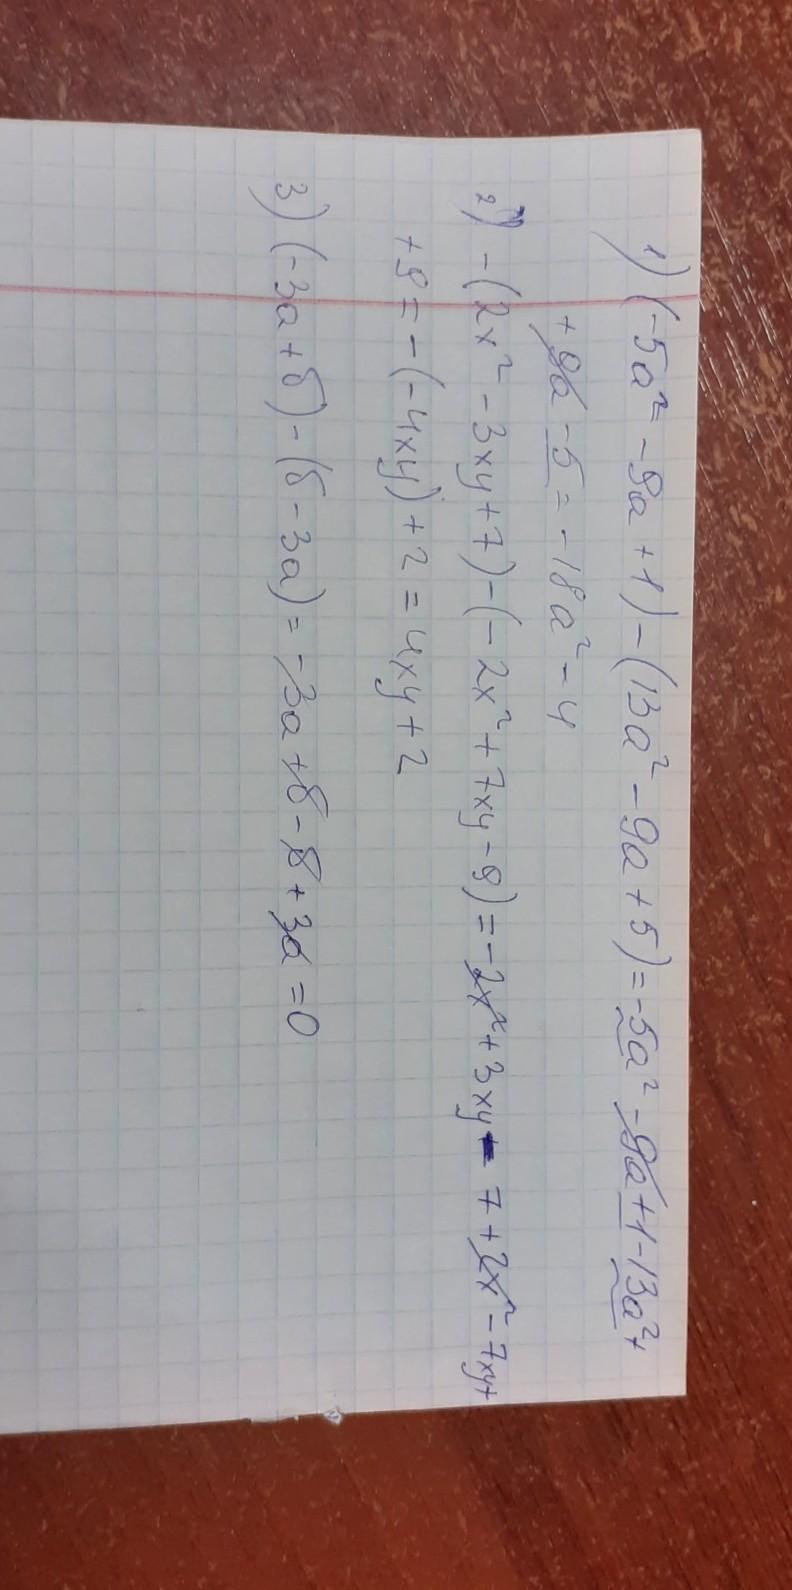 1) (-5a² - 9a + 1) - (13a² - 9a + 5) = -5a² - 9a + 1 - 13a² +
+ 9a - 5 = -18a² - 4
2) - (2x² - 3xy + 7) - (-2x² + 7xy - 9) = -2x² + 3xy - 7 + 2x² - 7xy +
+ 9 = - (-4xy) + 2 = 4xy + 2
3) (-3a + б) - (б - 3a) = -3a + б - б + 3a = 0